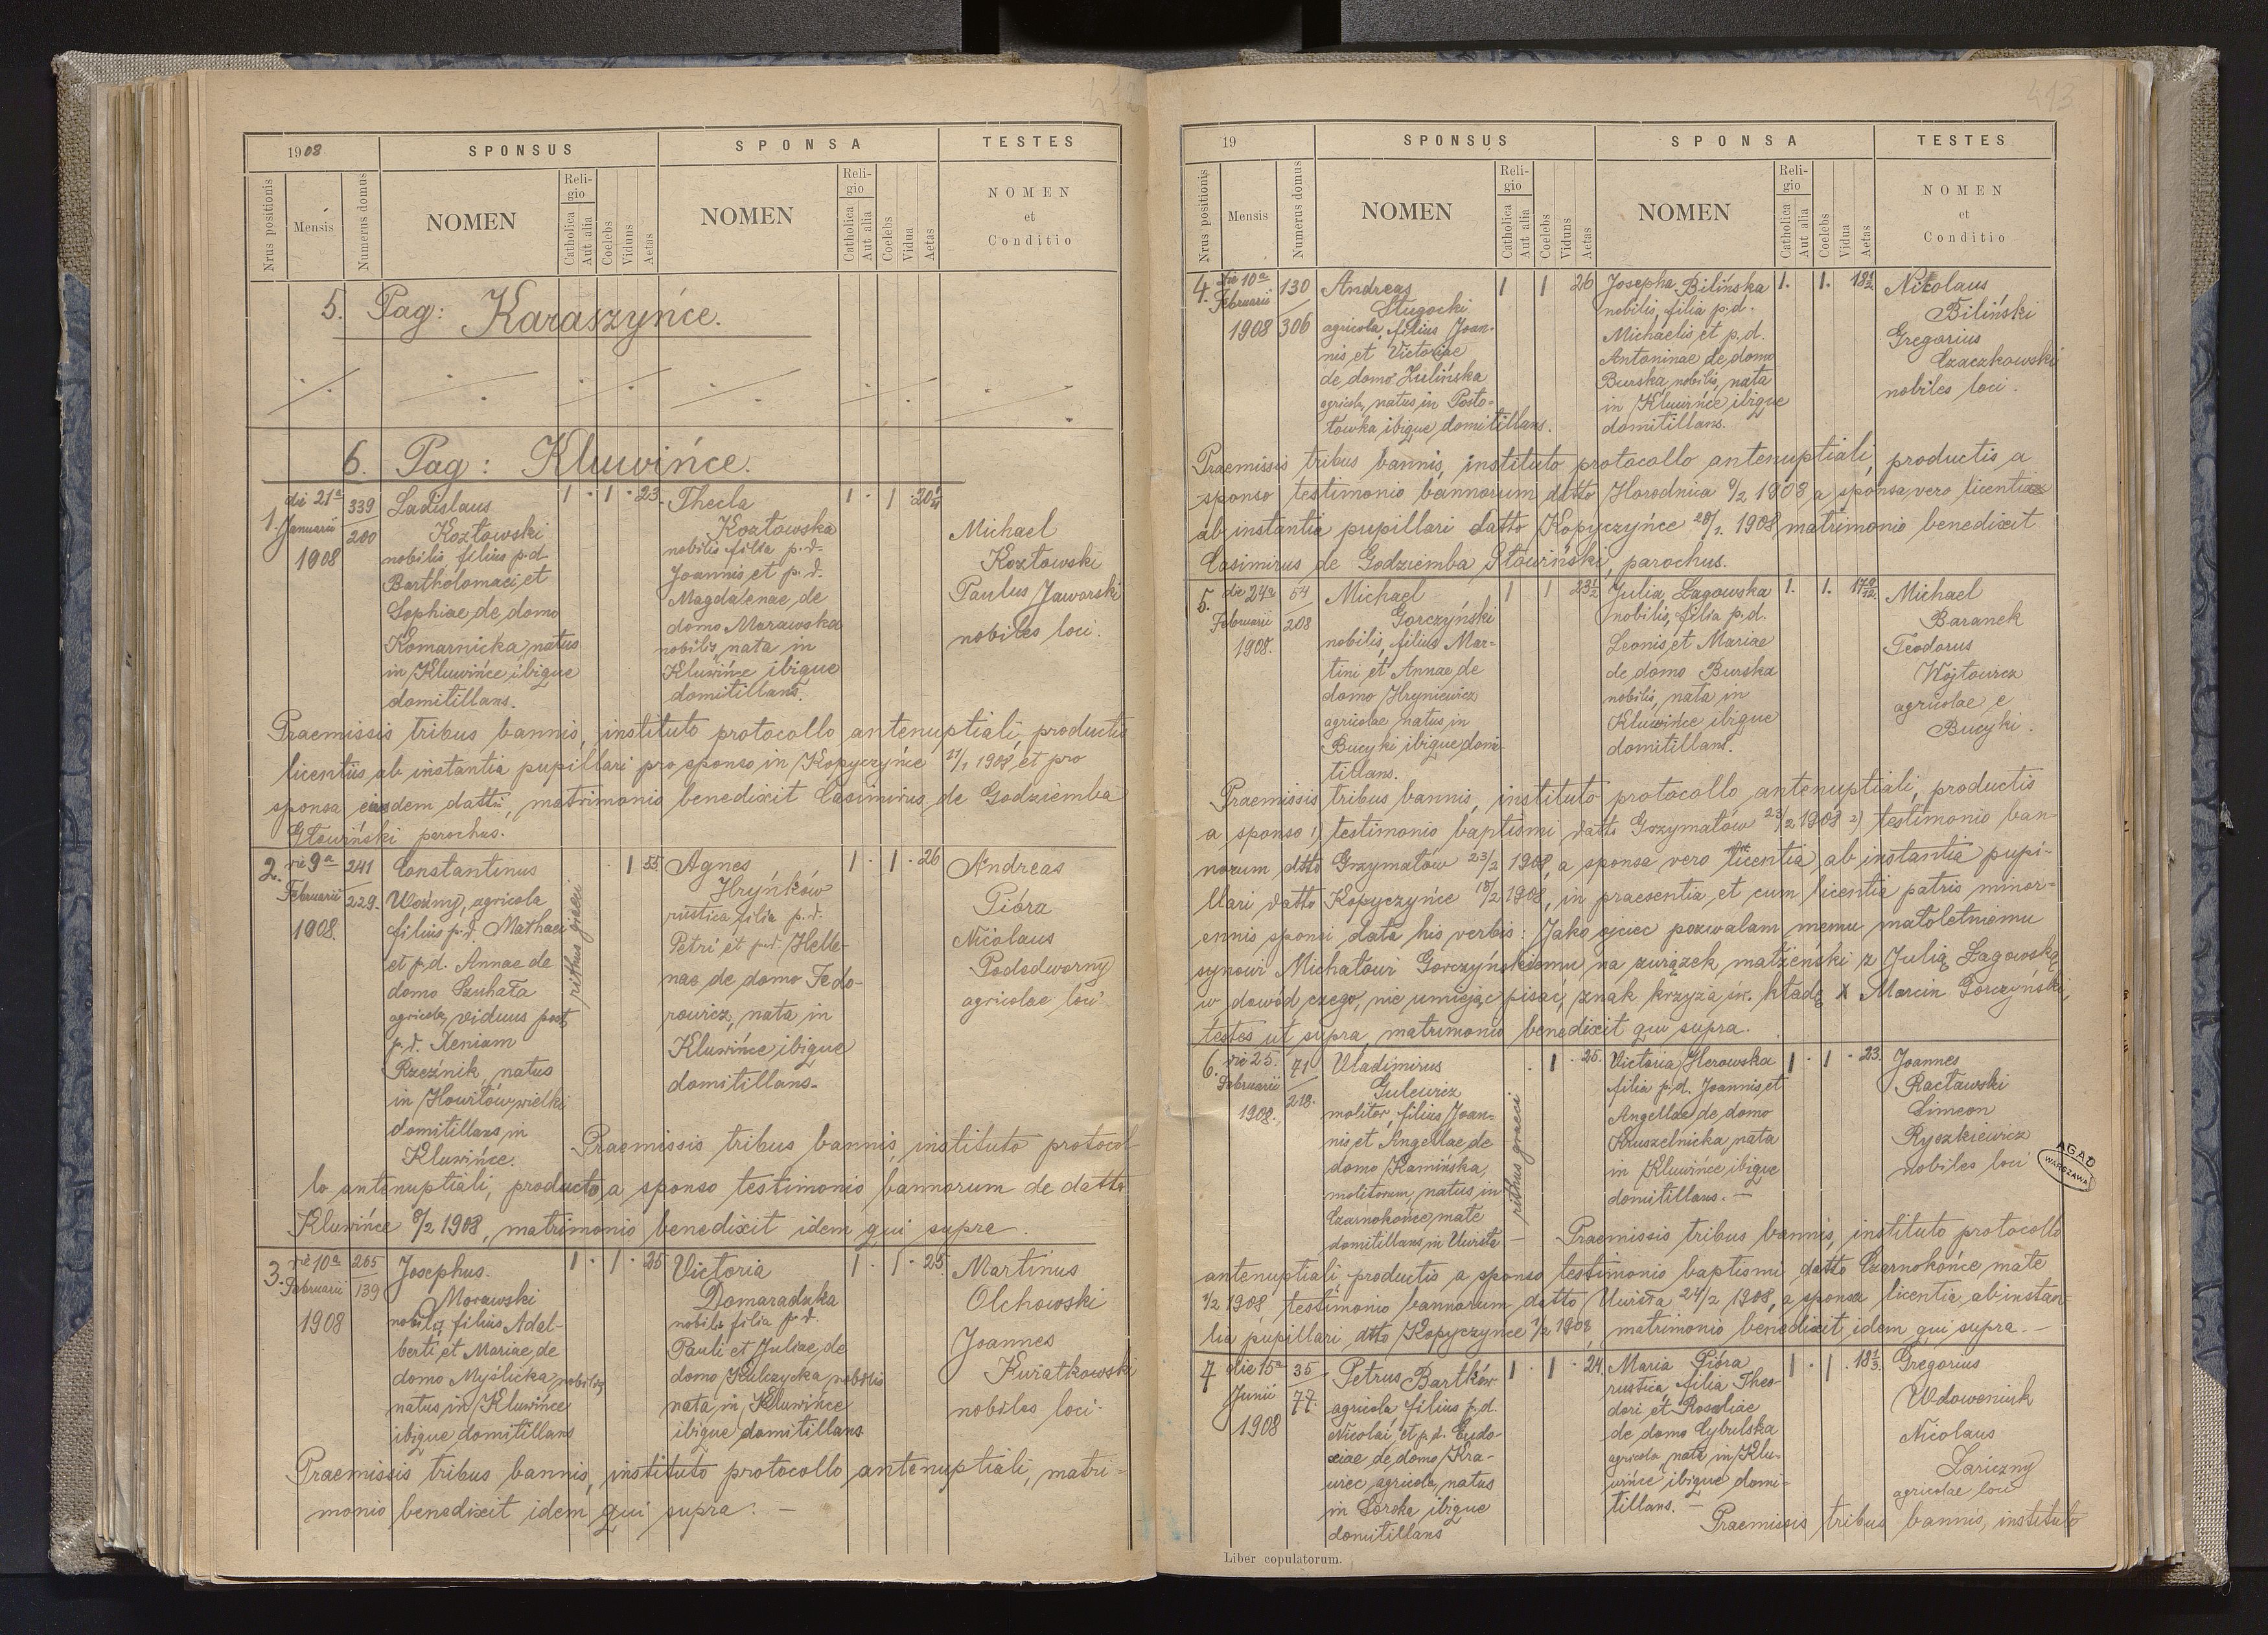 1908
SPONSUS
SPONSA
TESTES
Nrus positionis
Mensis
Numerus domus
NOMEN
Religio
Catholica
Aut alia
Coelebs
Viduus
Aetas
NOMEN
Religio
Catholica
Aut alia
Coelebs
Vidua
Aetas
NOMEN
et
Conditio
5. Pag: Karaszyńce.
6. Pag: Kluwińce.
1.
die 21ª
Januarii
1908
339
200
Ladislaus
Kozłowski
nobilis, filius p.d.
Bartholomaei et
Sophiae de domo
Komarnicka, natus
in Kluwińce ibique
domitillans.
1 · 1 · 23
Thecla
Kozłowska
nobilis filia p.d.
Joannis et p.d.
Magdalenae de
domo Morawska
nobilis, nata in
Kluwińce ibique
domitillans.
1 · 1 ·
Michael
Kozłowski
Paulus Jaworski
nobiles loci.
Praemissis tribus bannis, instituto protocollo antenuptiali, productis
licentiis ab instantia pupillari pro sponso in Kopyczyńce 11/1 1908, et pro
sponsa eiusdem datti, matrimonio benedixit Casimirus de Godziemba
Głowiński parochus.
2.
die 9ª
Februarii
1908.
241
229.
Constantinus
Woźny, agricola
filius p.d. Mathaei
et p.d. Annae de
domo Szuhała
agricola, viduus post
p.d. Xeniam
Rzeźnik, natus
in Howiłów wielki
domitillans in
Kluwińce.
ritus graeci
1 55
Agnes
Hryńków
rustica filia p.d.
Petri et p.d. Helle-
nae de domo Fedo-
rowicz, nata in
Kluwińce ibique
domitillans.
1 · 1 · 26
Andreas
Pióra
Nicolaus
Podedworny
agricolae loci
Praemissis tribus bannis, instituto protocol
lo antenuptiali, producto a sponso testimonio bannorum de datto
Kluwińce 9/2 1908, matrimonio benedixit idem qui supra.
3.
die 10ª
Februarii
1908
265
139
Josephus
Morawski
nobilis filius Adal-
berti et Mariae de
domo Myślicka, nobilis
natus in Kluwińce
ibique domitillans
1 · 1 · 25
Victoria
Domaradzka
nobilis filia p.d.
Pauli et Juliae de
domo Kulczycka nobilis
nata in Kluwińce
ibique domitillans
1 · 1 · 25
Martinus
Olchowski
Joannes
Kwiatkowski
nobiles loci.
Praemissis tribus bannis, instituto protocollo antenuptiali, matri-
monio benedixit idem qui supra. —
413
19
SPONSUS
SPONSA
TESTES
Nrus positionis
Mensis
Numerus domus
NOMEN
Religio
Catholica
Aut alia
Coelebs
Viduus
Aetas
NOMEN
Religio
Catholica
Aut alia
Coelebs
Vidua
Aetas
NOMEN
et
Conditio
4.
die 10ª
Februarii
1908
130
306
Andreas
Długocki
agricola, filius Joan-
nis et Victoriae
de domo Zulińska
agricola, natus in Posto-
łówka ibique domitillans.
1 1 26
Josepha Bilińska
nobilis, filia p.d.
Michaelis et p.d.
Antoninae de domo
Burska nobilis, nata
in Kluwińce ibique
domitillans.
1. 1. 18½
Nicolaus
Biliński
Gregorius
Czaczkowski
nobiles loci.
Praemissis tribus bannis, instituto protocollo antenuptiali, productis a
sponso testimonio bannorum datto Horodnica 9/2 1908 a sponsa vero licentia
ab instantia pupillari datto Kopyczyńce 28/1. 1908, matrimonio benedixit
Casimirus de Godziemba Głowiński, parochus.
5.
die 24ª
Februarii
1908.
54
208
Michael
Gorczyński
nobilis, filius Mar-
tini et Annae de
domo Hryniewicz
agricolae natus in
Bucyki ibique domi-
tillans.
1 1 23½
Julia Łagowska
nobilis, filia p.d.
Leonis et Mariae
de domo Burska
nobilis, nata in
Kluwińce ibique
domitillans.
1. 1. 17 9/12.
Michael
Baranek
Teodorus
Wojtowicz
agricolae e
Bucyki.
Praemissis tribus bannis, instituto protocollo antenuptiali, productis
a sponso 1) testimonio baptismi datto Grzymałów 23/2 1908 2) testimonio ban-
norum datto Grzymałów 23/2 1908, a sponsa vero licentia ab instantia pupi-
llari datto Kopyczyńce 18/2 1908, in praesentia et cum licentia patris minor-
ennis sponsi data his verbis: Jako ojciec pozwalam memu małoletniemu
synowi Michałowi Gorczyńskiemu na związek małżeński z Julią Łagowską,
w dowód czego, nie umiejąc pisać, znak krzyża św. kładę X Marcin Gorczyński,
testes ut supra, matrimonio benedixit qui supra.
6.
die 25.
Februarii
1908.
71
218.
Vladimirus
Gulewicz
molitor, filius Joan-
nis et Angellae de
domo Kamińska,
molitorum, natus in
Czarnokońce małe
domitillans in Uwisła —
ritus graeci
1 · 25.
Victoria Herowska
filia p.d. Joannis et
Angellae de domo
Kruszelnicka nata
in Kluwińce ibique
domitillans. —
1 · 1 · 23.
Joannes
Racławski
Simeon
Ryszkiewicz
nobiles loci
AGAD
WARSZAWA
Praemissis tribus bannis, instituto protocollo
antenuptiali, productis a sponso testimonio baptismi datto Czarnokońce małe
1/2 1908, testimonio bannorum datto Uwisła 24/2 1908, a sponsa licentia ab instan-
tia pupillari datto Kopyczyńce 1/2 1908, matrimonio benedixit idem qui supra. —
7
die 15ª
Junii
1908
35
77.
Petrus Bartków
agricola filius p.d.
Nicolai et p.d. Eudo-
xiae de domo Kra-
wiec agricola, natus
in Soroka ibique
domitillans
1 · 1 · 24.
Maria Pióra
rustica, filia Theo-
dori et Rosaliae
de domo Cybulska
agricola nata in Klu-
wińce ibique domi-
tillans. —
1 · 1 . 18⅓.
Gregorius
Wdoweniuk
Nicolaus
Lariczny
agricolae loci
Praemissis tribus bannis, instituto
Liber copulatorum.